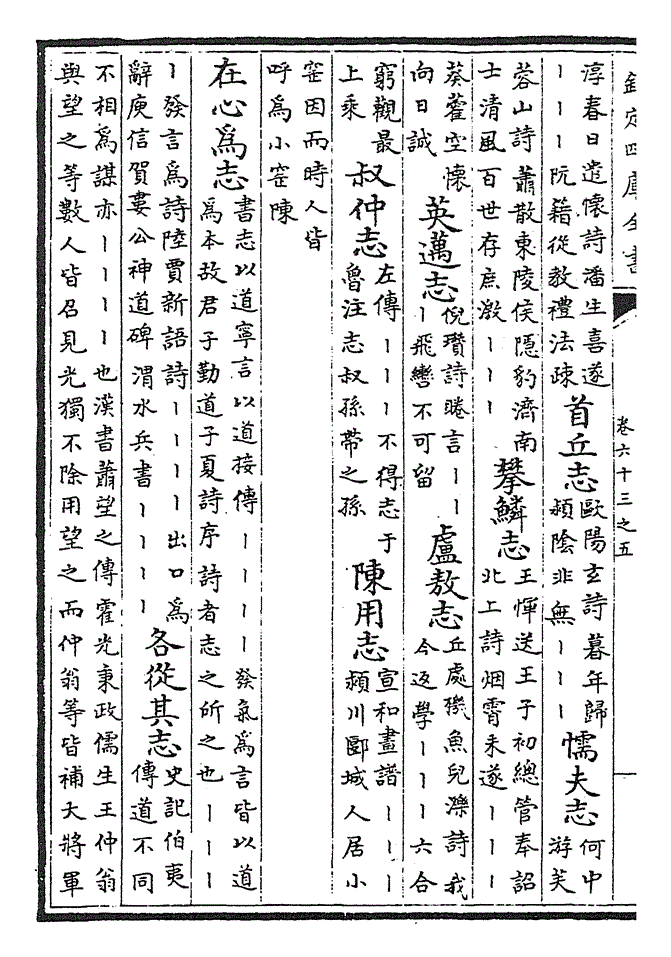 欽定四庫全書
卷六十三之五
淳春日遣懷詩潘生喜遂
丨丨丨阮籍從教禮法疎
首丘志
歐陽玄詩暮年歸
潁陰非無丨丨丨
懦夫志
何中
游芙
蓉山詩蕭散東陵侯隱豹濟南
士清風百世存庶激丨丨丨
攀鱗志
王惲送王子初總管奉詔
北上詩烟霄未遂丨丨丨
葵藿空懷
向日誠
英邁志
倪瓚詩睠言丨丨
丨飛轡不可留
盧敖志
丘處機魚兒濼詩我
今返學丨丨丨六合
窮觀最
上乘
叔仲志
左傳丨丨丨不得志于
魯注志叔孫帶之孫
陳用志
宣和畫譜丨丨丨
潁川郾城人居小
窑因而時人皆
呼爲小窑陳
在心爲志
書志以道寧言以道接傳丨丨丨丨發氣爲言皆以道
爲本故君子勤道子夏詩序詩者志之所之也丨丨丨
丨發言爲詩陸賈新語詩丨丨丨丨出口爲
辭庾信賀婁公神道碑渭水兵書丨丨丨丨
各從其志
史記伯夷
傳道不同
不相爲謀亦丨丨丨丨也漢書蕭望之傳霍光秉政儒生王仲翁
與望之等數人皆召見光獨不除用望之而仲翁等皆補大將軍